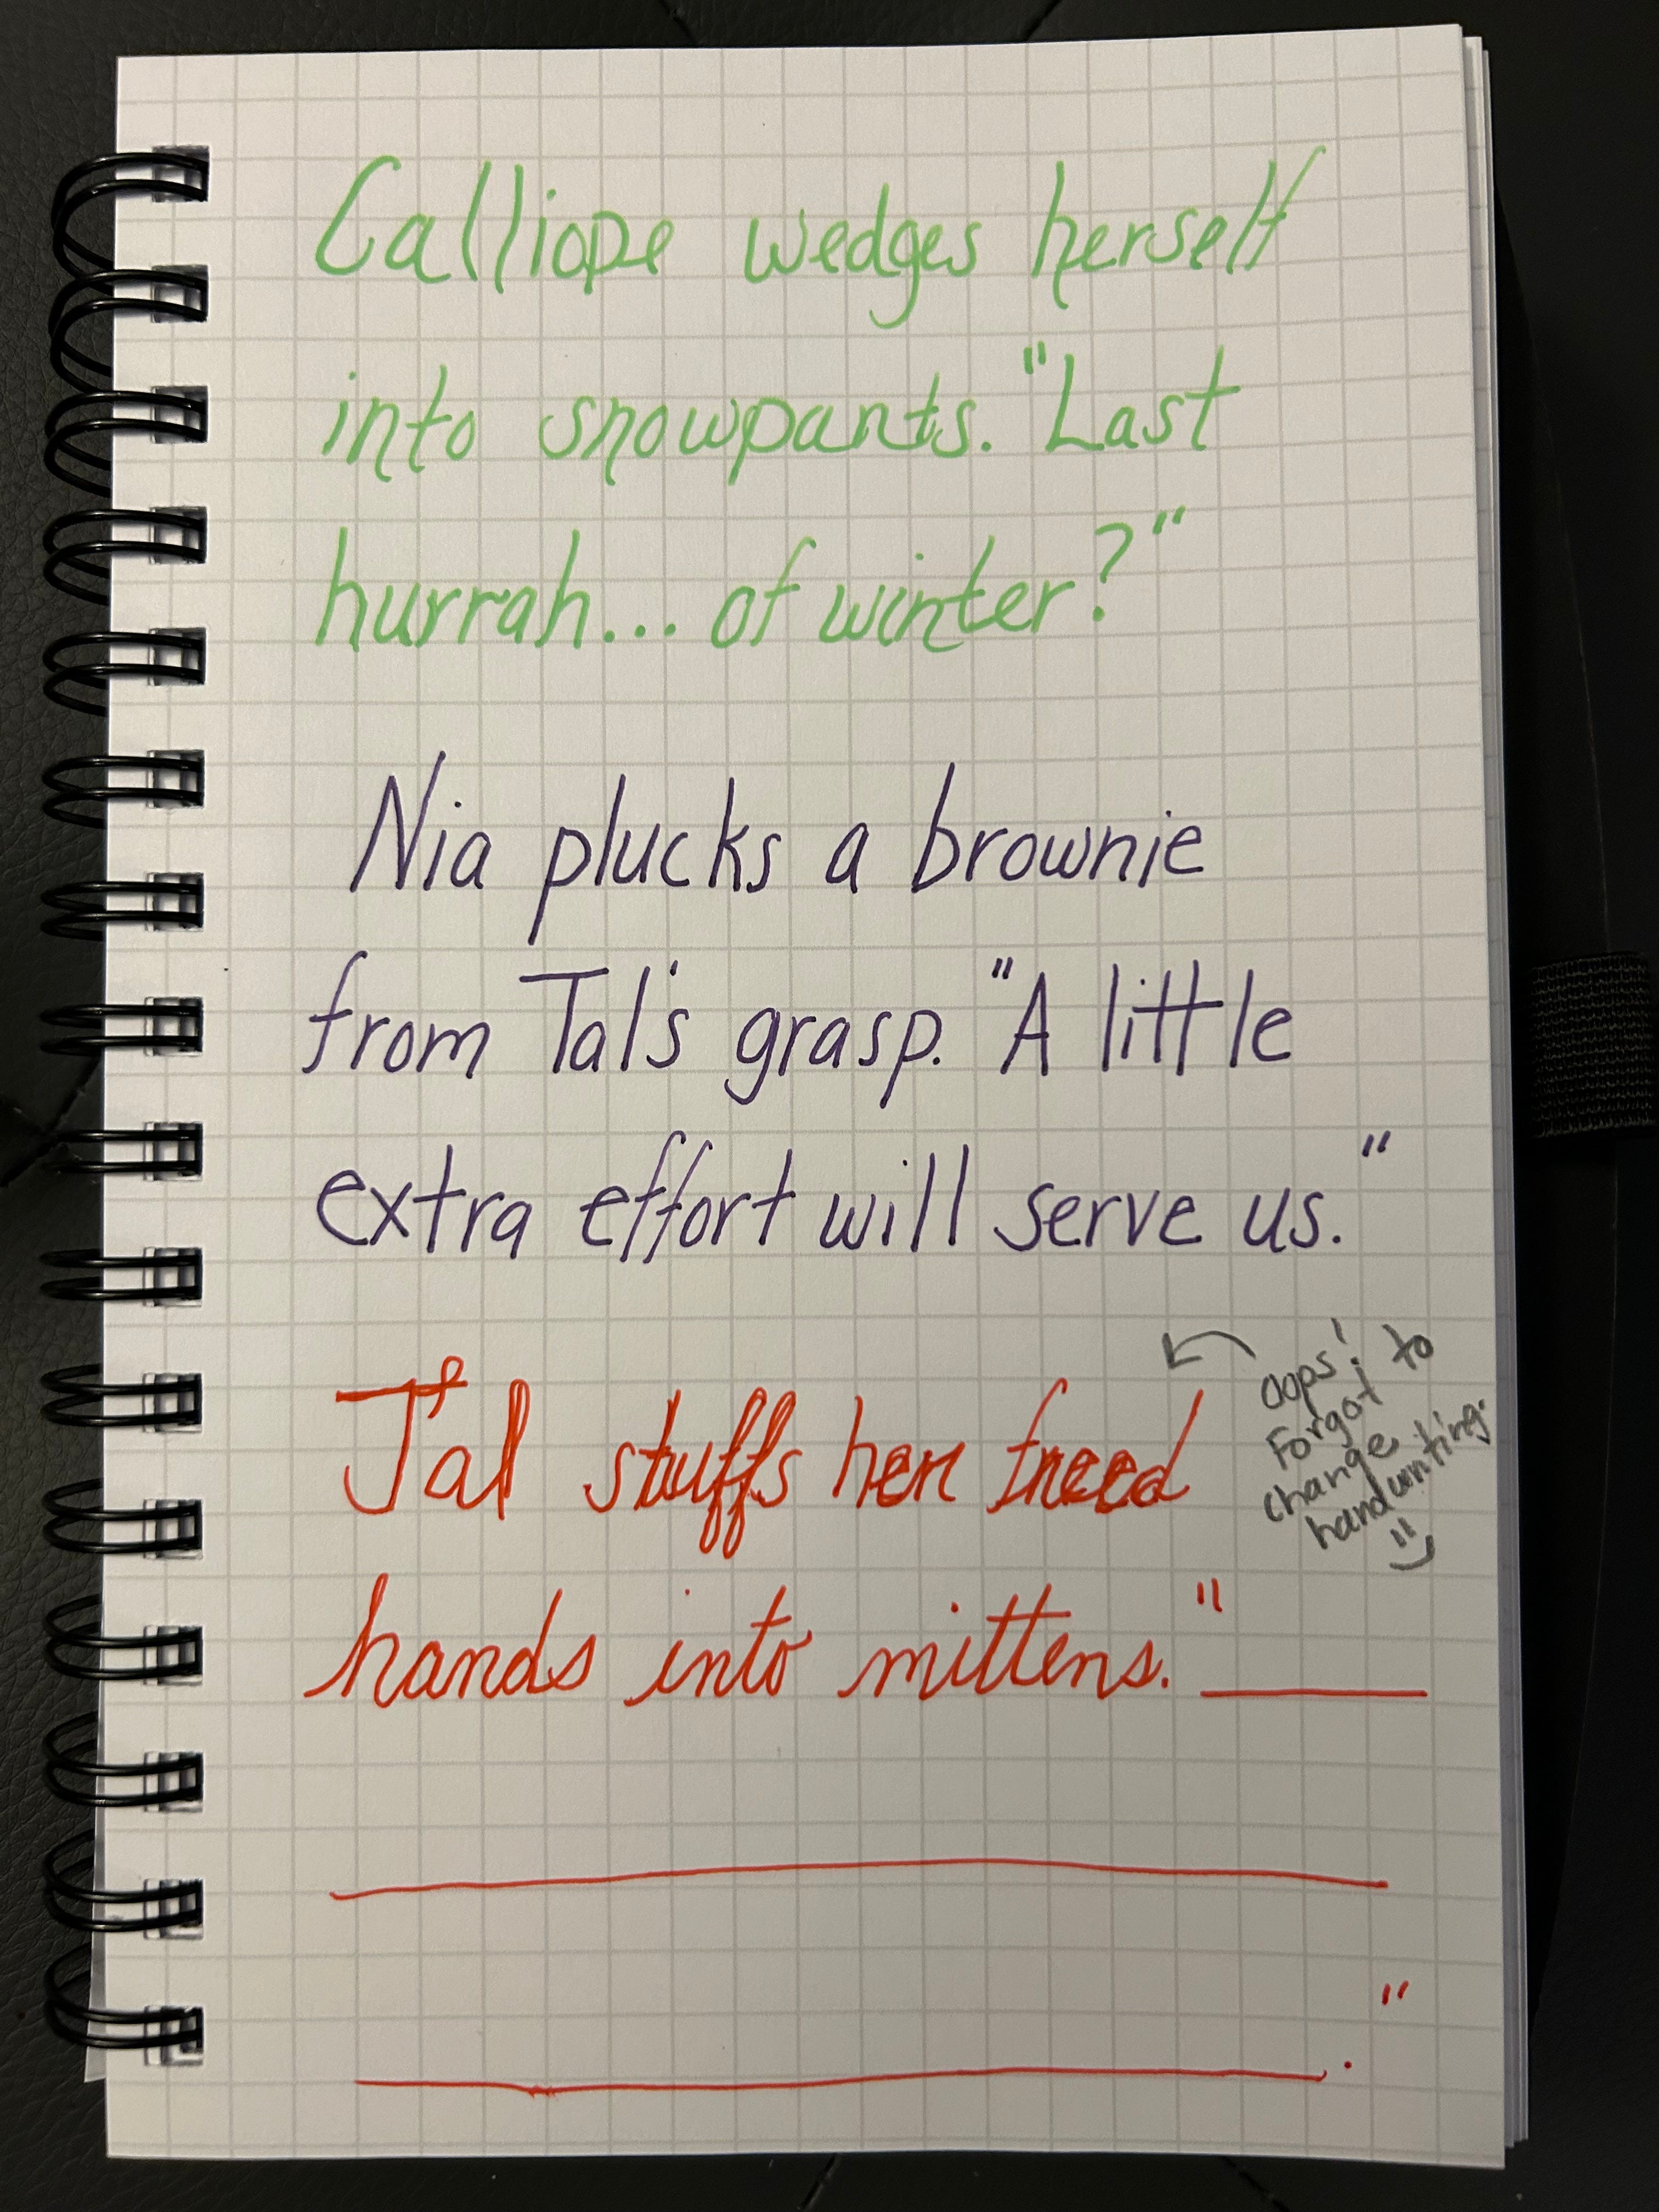 Calliope wedges herself
into snowpants. "Last
hurrah... of winter?"
Nia plucks a brownie
from Tal's grasp. "A little
extra effort will serve us."
Tal stuffs her freed
hands into mittens. "_____
_____
_____."
Oops! 
Forgot to
change
handwriting.